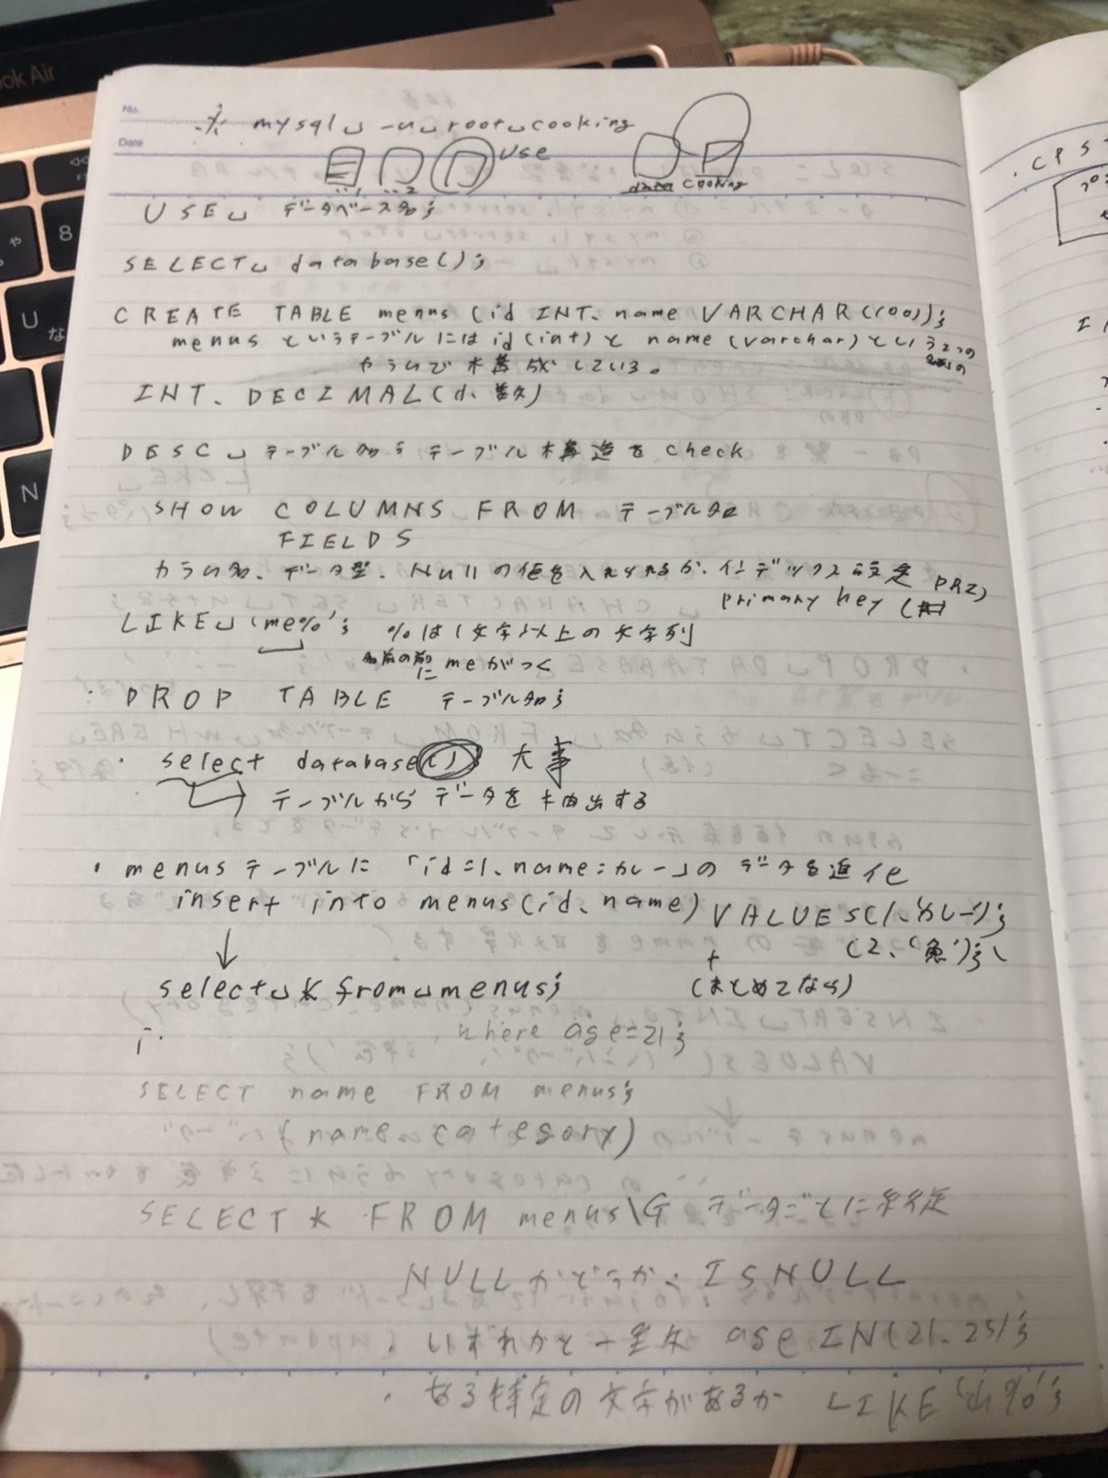 ook Air
No.
Date
※ mysql␣ -u␣root␣cooking
use
data cooking
USE␣ データベース名;
SELECT␣ database();
CREATE TABLE menus (id INT、name VARCHAR(100));
menus というテーブルには id(int) と name(varchar) という2つの
カラムで構成している。
INT、DECIMAL(d、数)
DESC␣ テーブル名; テーブル構造を check
SHOW COLUMNS FROM テーブル名
FIELDS
カラム名、データ型、Nullの値を入れられるか、インデックス設定 PRI)
primary key
LIKE␣ 'me%'; %は1文字以上の文字列
名前の前に meがつく
・DROP TABLE テーブル名;
・select database() 大事
テーブルから データを抽出する
・menusテーブルに 「id=1、name=カレー」の データを追加
insert into menus(id、name) VALUES(1、'カレー');
(2、'魚');
↓
+
select␣* from␣menus; (まとめてなら)
where age=21;
SELECT name FROM menus;
(name category)
SELECT * FROM menus\G データごとに
NULLかどうか: IS NULL
いずれかと一致 age IN(21、25);
・ある特定の文字があるか LIKE
U
な
8
や
N